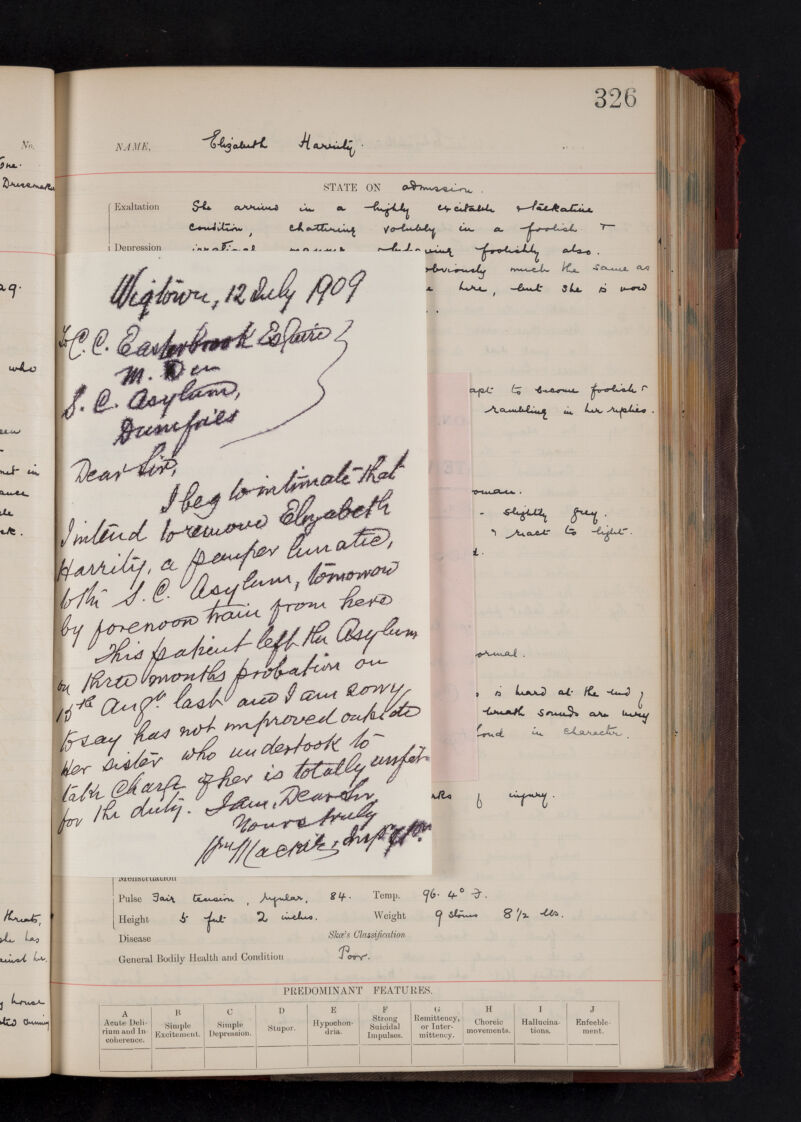 326
No.
NAME, Elizabeth Harrity.
Dressmaker
STATE ON admission.
Exaltation She arrived in a highly excitable & talkative
condition, chattering volubly in a foolish &
Depression irrational manner & behaving foolishly also.
obviously much the same as
here, but she is now
who
apt to become foolish &
rambling in her replies.
Wigtown, 12 July 1909
To C. C. Easterbrook Esquire
M. D
S. C. Asylum,
Dumfries
Dear Sir,
I beg to intimate that
I intend to remove Elizabeth
Harrity, a pauper lunatic,
to the S. C. Asylum, tomorrow
by forenoon train from here
This patient left the Asylum
on three months probation on
15th Augt. last and I am sorry
to say has not improved outside
Her sister who undertook to
take charge of her is totally unfit
for the duty. I am, Dear Sir,
Yours truly
Wm Mackie, Inspr
- slightly grey.
& react to light.
is heard at the end of
breath sounds are very
loud in character.
of injury.
Menstruation
Pulse Fair tension, regular, 84. Temp. 96.4° F.
Height 5 feet 2 inches. Weight 9 stones 8 1/2 lbs.
Disease Skae's Classification
General Bodily Health and Condition Poor.
threats,
she has
against her.
house
PREDOMINANT FEATURES.
A B C D E F G H I J
Acute Delirium and Incoherence. Simple Excitement. Simple Depression. Stupor. Hypochondria. Strong Suicidal Impulses. Remittency, or Intermittency. Choreic movements. Hallucinations. Enfeeblement.